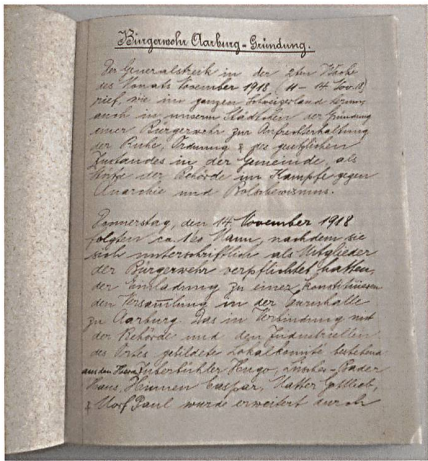 Bürgerwehr Aarburg-Gründung.
Der Generalstreik in der 2ten Woche
des Monats November 1918, 11-14 Nov. 18)
rief, wie im ganzen Schweizerland herum
auch in unserm Städtchen der Gründung
einer Bürgerwehr zur Aufrechterhaltung
der Ruhe, Ordnung & des gesetzlichen
Zustandes in der Gemeinde, als
der Behörde im Kampfe gegen
Anarchie und Bolschewismus.
Donnerstag, den 14. November 1918
folgten ca. Mann, nachdem sie
sich unterschriftlich als Mitglieder
der Bürgerwehr verpflichtet hatten,
der Einladung zu einer
den Versammlung in der Turnhalle
zu Aarburg. Das in Verbindung mit
der Behörde und den Industriellen
des Ortes gebildete Lokalkomite bestehend
aus den Herren Hugo,
Hans, Caspar, Gottlieb,
& Paul wurde erweitert durch